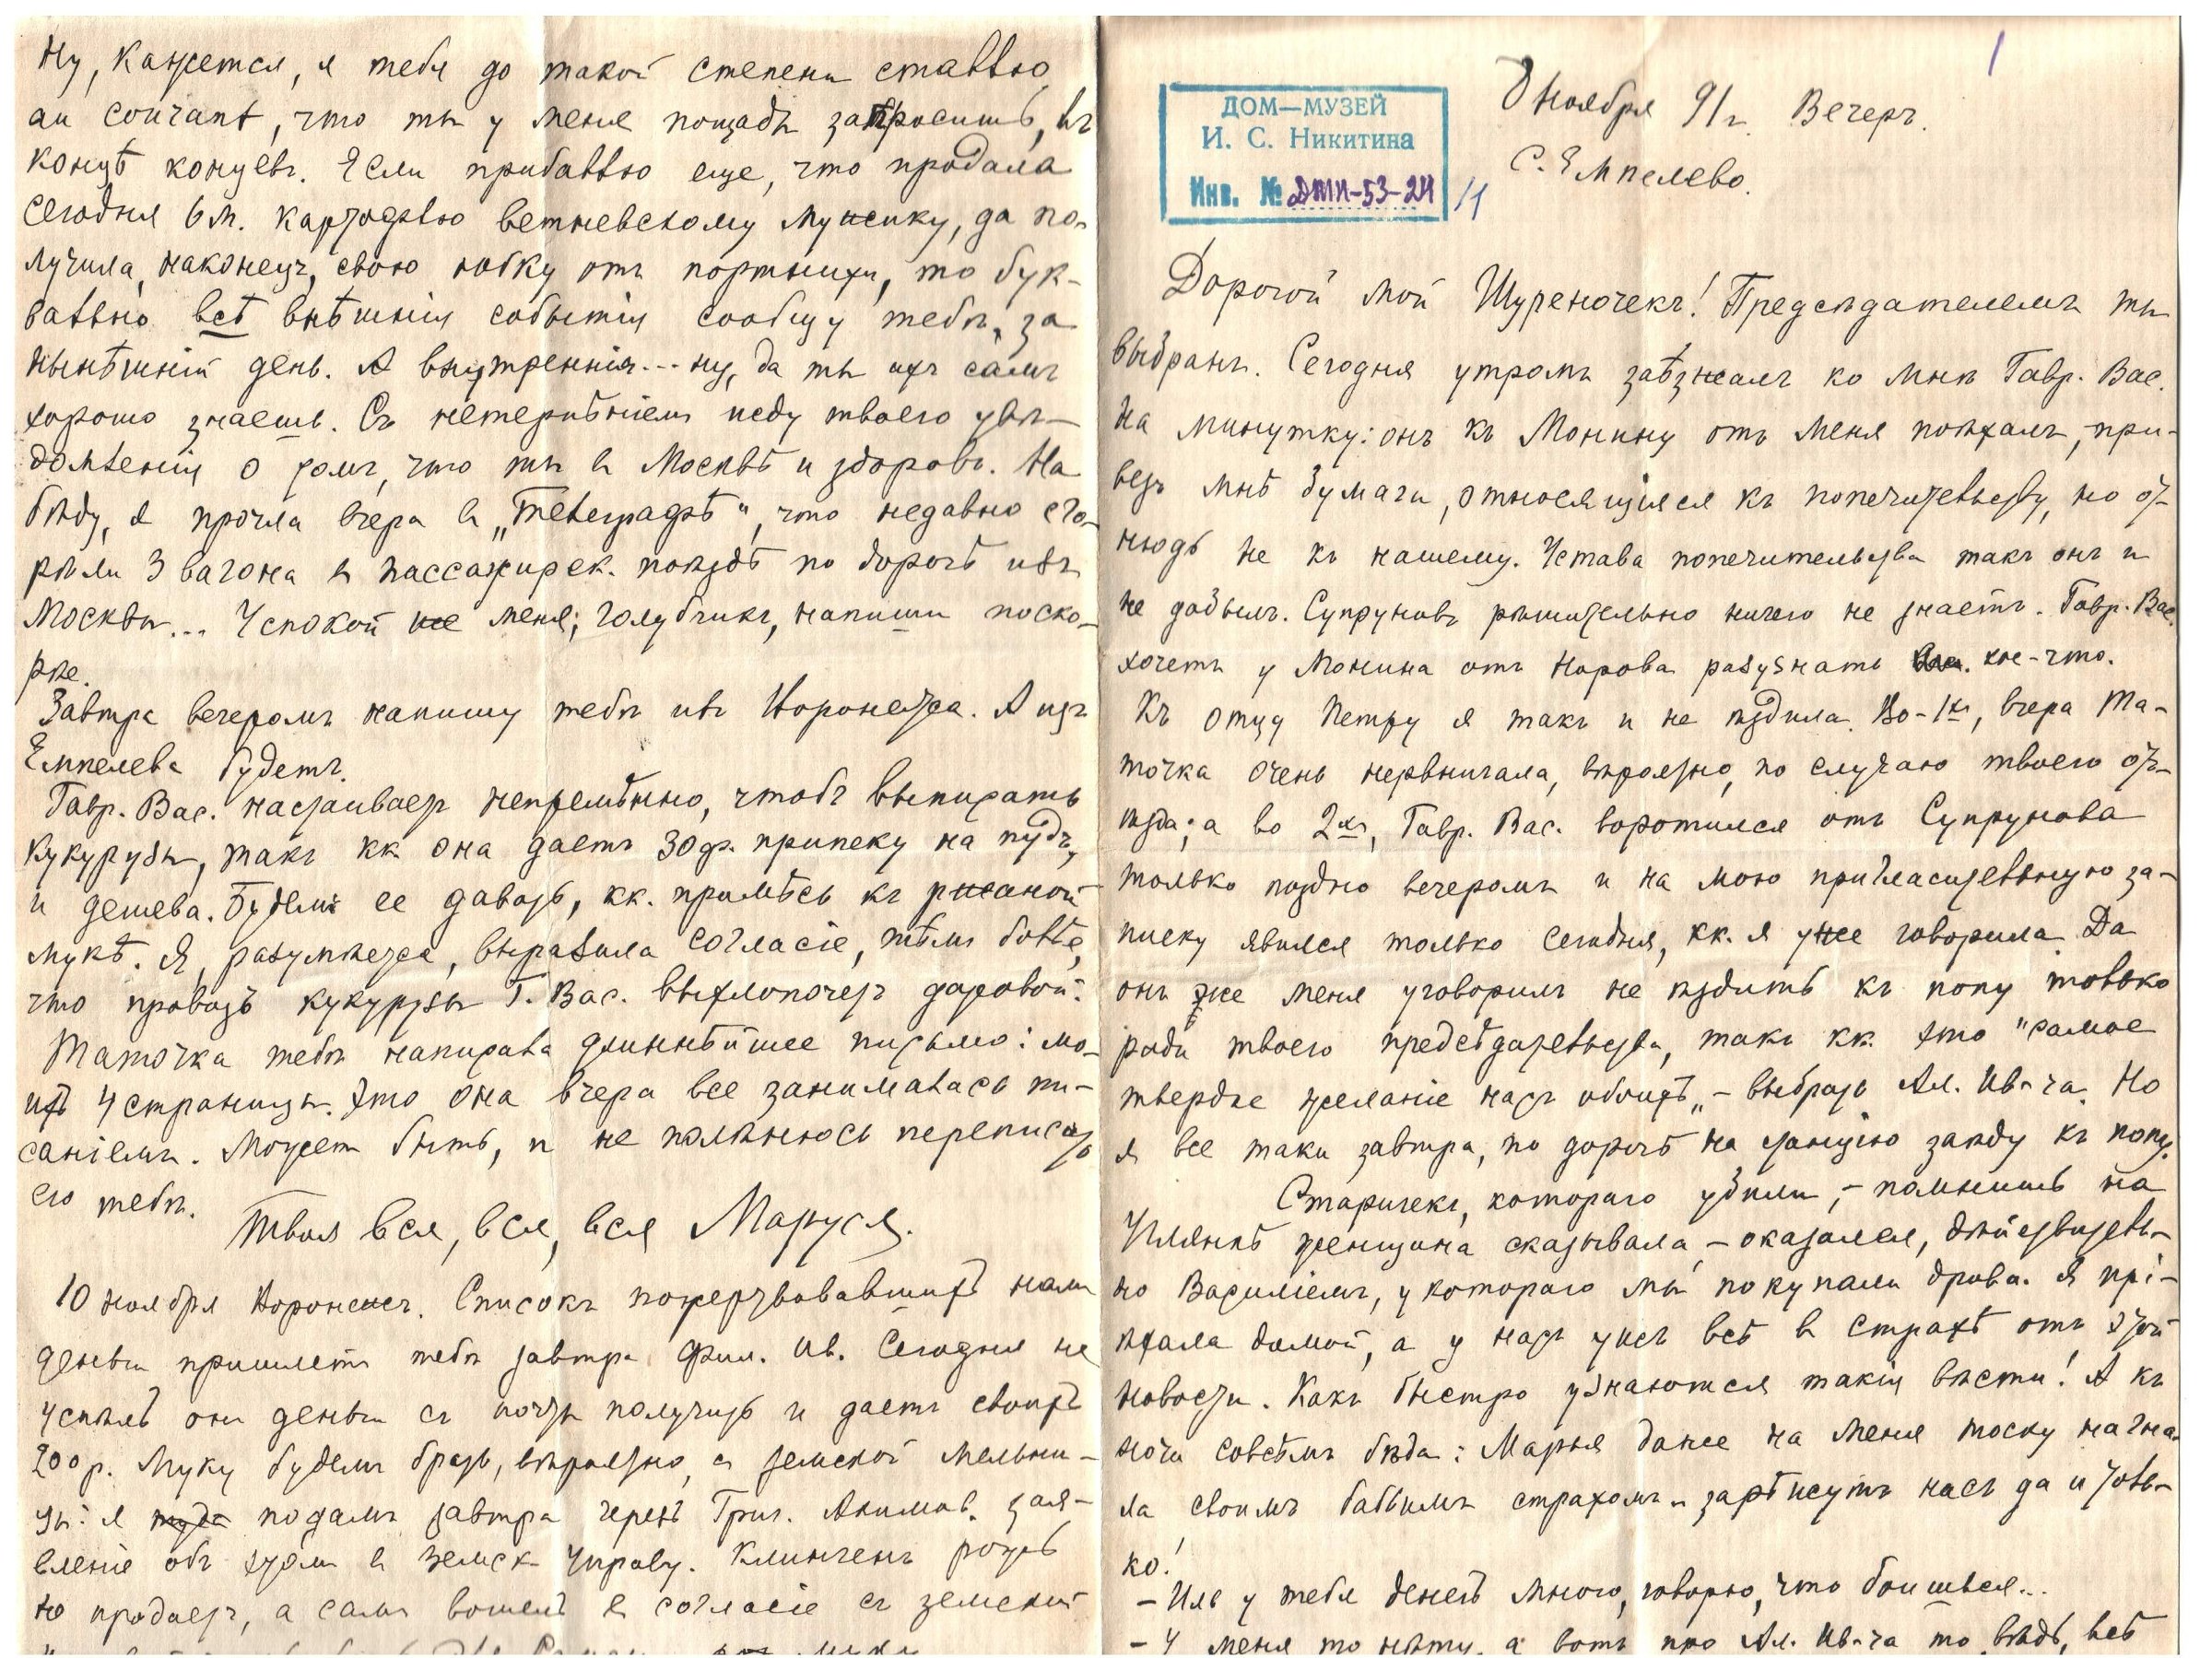 1
8 Ноября 91 г. Вечеръ.
С. Емпелево.
ДОМ—МУЗЕЙ
И. С. Никитина
Инв. № ДМН-53-24
/1
Дорогой мой Шуреночекъ! Предсѣдателемъ ты
выбранъ. Сегодня утромъ заѣзжалъ ко мнѣ Гавр. Вас.
на минутку: онъ къ Монину отъ меня поѣхалъ, при-
везъ мнѣ бумаги, относящіяся къ попечительству, но от-
нюдь не къ нашему. Устава попечительства такъ онъ и
не добылъ. Супруновъ рѣшительно ничего не знаетъ. Гавр. Вас.
хочетъ у Монина отъ Норова разузнать кое-что.
Къ отцу Петру я такъ и не ѣздила. Во-1хъ, вчера Та-
точка очень нервничала, вѣроятно, по случаю твоего отъ-
ѣзда; а во 2хъ, Гавр. Вас. воротился отъ Супрунова
только поздно вечеромъ и на мою пригласительную за-
писку явился только сегодня, кк. я уже говорила. Да
онъ же меня уговорилъ не ѣздить къ попу только
ради твоего предсѣдательства, такъ кк. это "самое
твердое желаніе насъ обоихъ" – выбрать Ал. Ив-ча. Но
я все таки завтра, по дорогѣ на станцію заѣду къ попу.
Старичекъ, котораго убили, – помнишь на
Углянкѣ женщина сказывала, – оказался, дѣйствитель-
но Василіемъ, у котораго мы покупали дрова. Я прі-
ѣхала домой, а у насъ ужъ всѣ въ страхѣ отъ этой
новости. Какъ быстро узнаются такія вѣсти! А къ
ночи совсѣмъ бѣда: Марья даже на меня тоску нагна-
ла своимъ бабьимъ страхомъ – зарѣжутъ насъ да и толь-
ко!
– Иль у тебя денегъ много, говорю, что боишься...
– У меня то нѣту, а вотъ про Ал. Ив-ча то, вѣдь, всѣ
Ну, кажется, я тебя до такой степени ставлю
au courant, что ты у меня пощады запросишь, въ
концѣ концевъ. Если прибавлю еще, что продала
сегодня 6 м. картофлю ветневскому мужику, да по-
лучила, наконецъ, свою юбку отъ портнихи, то бук-
вально всѣ внѣшнія событія сообщу тебѣ за
нынѣшній день. А внутреннія... ну, да ты ихъ самъ
хорошо знаешь. Съ нетерпѣніемъ жду твоего увѣ-
домленія о томъ, что ты въ Москвѣ и здоровъ. На
бѣду, я прочла вчера въ „Телеграфѣ“, что недавно сго-
рѣли 3 вагона въ пассажирск. поѣздѣ по дорогѣ изъ
Москвы... Успокой же меня, голубчикъ, напиши поско-
рѣе.
Завтра вечеромъ напишу тебѣ изъ Воронежа. А изъ
Емпелева будетъ.
Гавр. Вас. настаиваетъ непремѣнно, чтобъ выписать
кукурузы, такъ кк. она даетъ 30 ф. припеку на пудъ,
и дешева. Будемъ ее давать, кк. примѣсь къ ржаной
мукѣ. Я, разумѣется, выразила согласіе, тѣмъ болѣе,
что провозъ кукурузы Г. Вас. выхлопочетъ даровой.
Таточка тебѣ написала длиннѣйшее письмо: мо-
ихъ 4 страницы. Это она вчера все занималась пи-
саніемъ. Можетъ быть, и не полѣнюсь переписать
его тебѣ.
Твоя вся, вся, вся Маруся.
10 ноября Воронежъ. Списокъ пожертвовавшихъ намъ
деньги пришлетъ тебѣ завтра Фил. Ив. Сегодня не
успѣлъ онъ деньги съ почты получить и даетъ своихъ
200 р. Муку будемъ брать, вѣроятно, съ земской мельни-
цы: я подамъ завтра черезъ Григ. Акимов. заяв-
вленіе объ этомъ въ земск. управу. Клинченъ рожь
не продаетъ, а самъ вошелъ въ согласіе съ земской